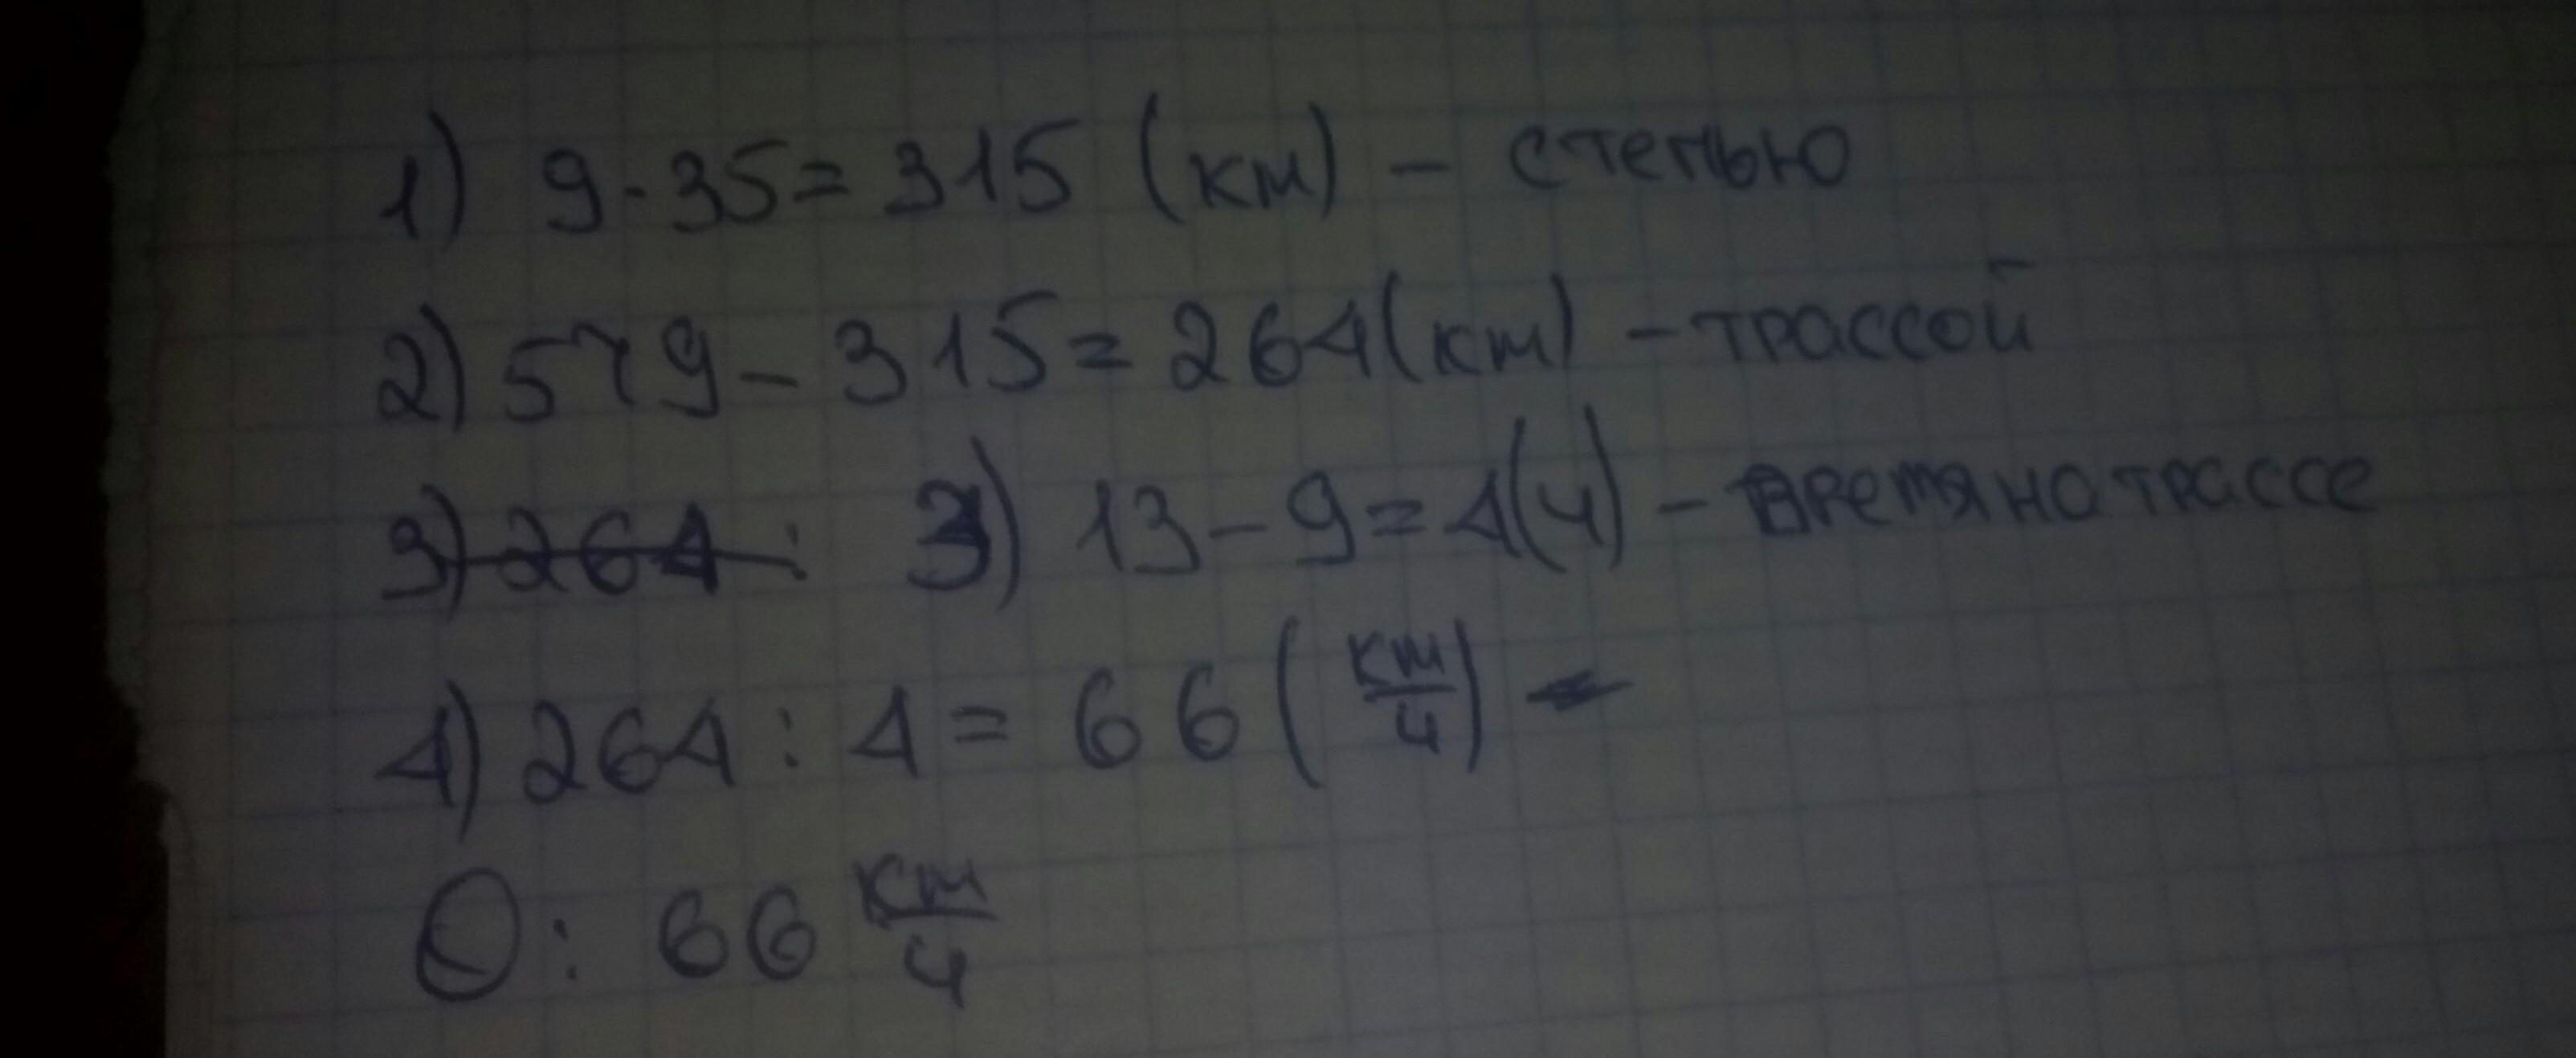 1) 9·35=315 (км) – степью
2) 579–315=264(км) – трассой
3) 264: 3) 13–9=4(ч) – время на трассе
4) 264:4=66(км/ч) –
О: 66 км/ч